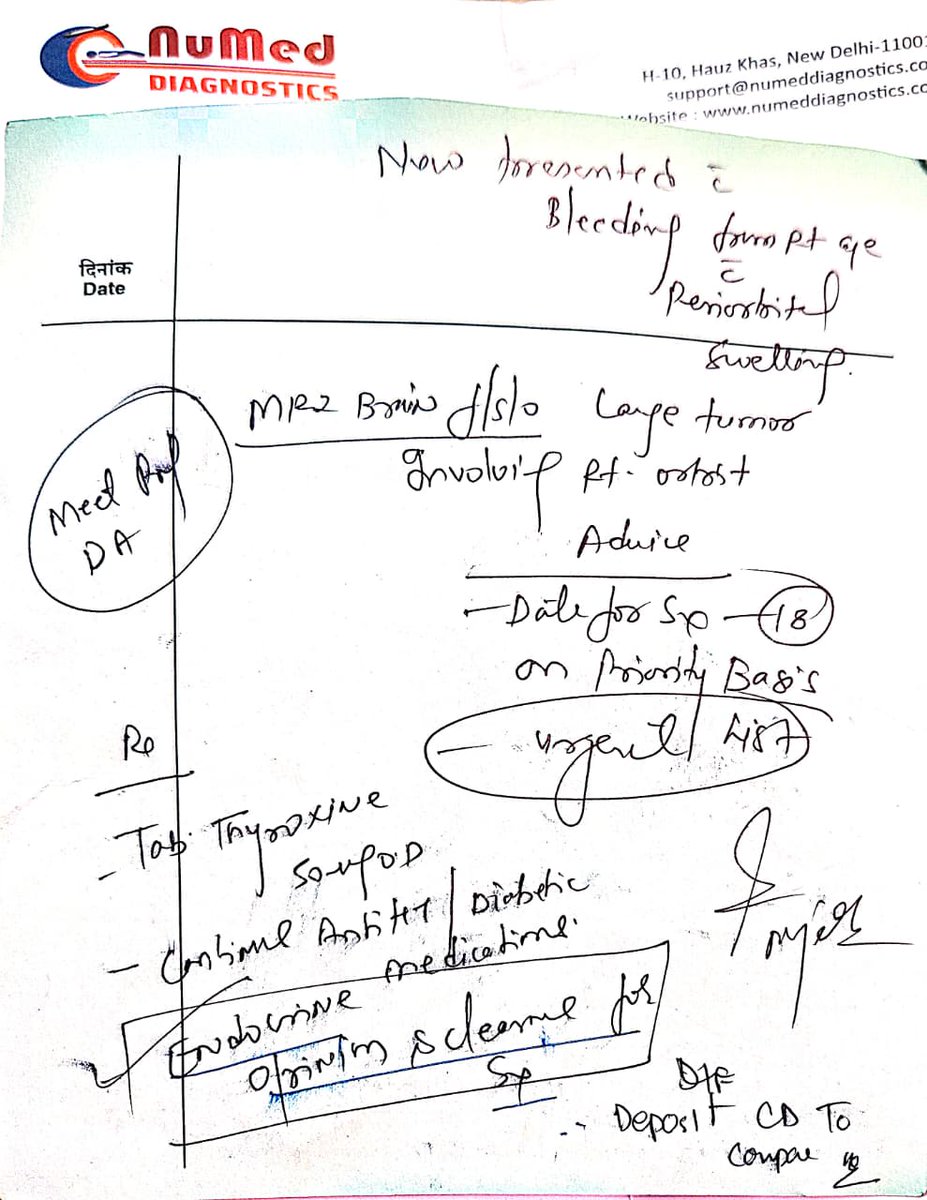 NuMed
DIAGNOSTICS
H-10, Hauz Khas, New Delhi-11001
support@numeddiagnostics.co
Website : www.numeddiagnostics.co
Now presented c̄
Bleeding from Rt eye
c̄
Periorbital
Swelling.
दिनांक
Date
MRI Brain f/s/o Large tumor
Involvig Rt. orbit
Meet Prof
DA
Advice
- Date for Sx - 18
on Priority Basis
- urgent List
Rx
- Tab. Thyroxine
50 µg OD
- Continue AntiHT / Diabetic
medications.
Endocrine
Opinion & clearance for
Sx
Deposit CD To
Compare